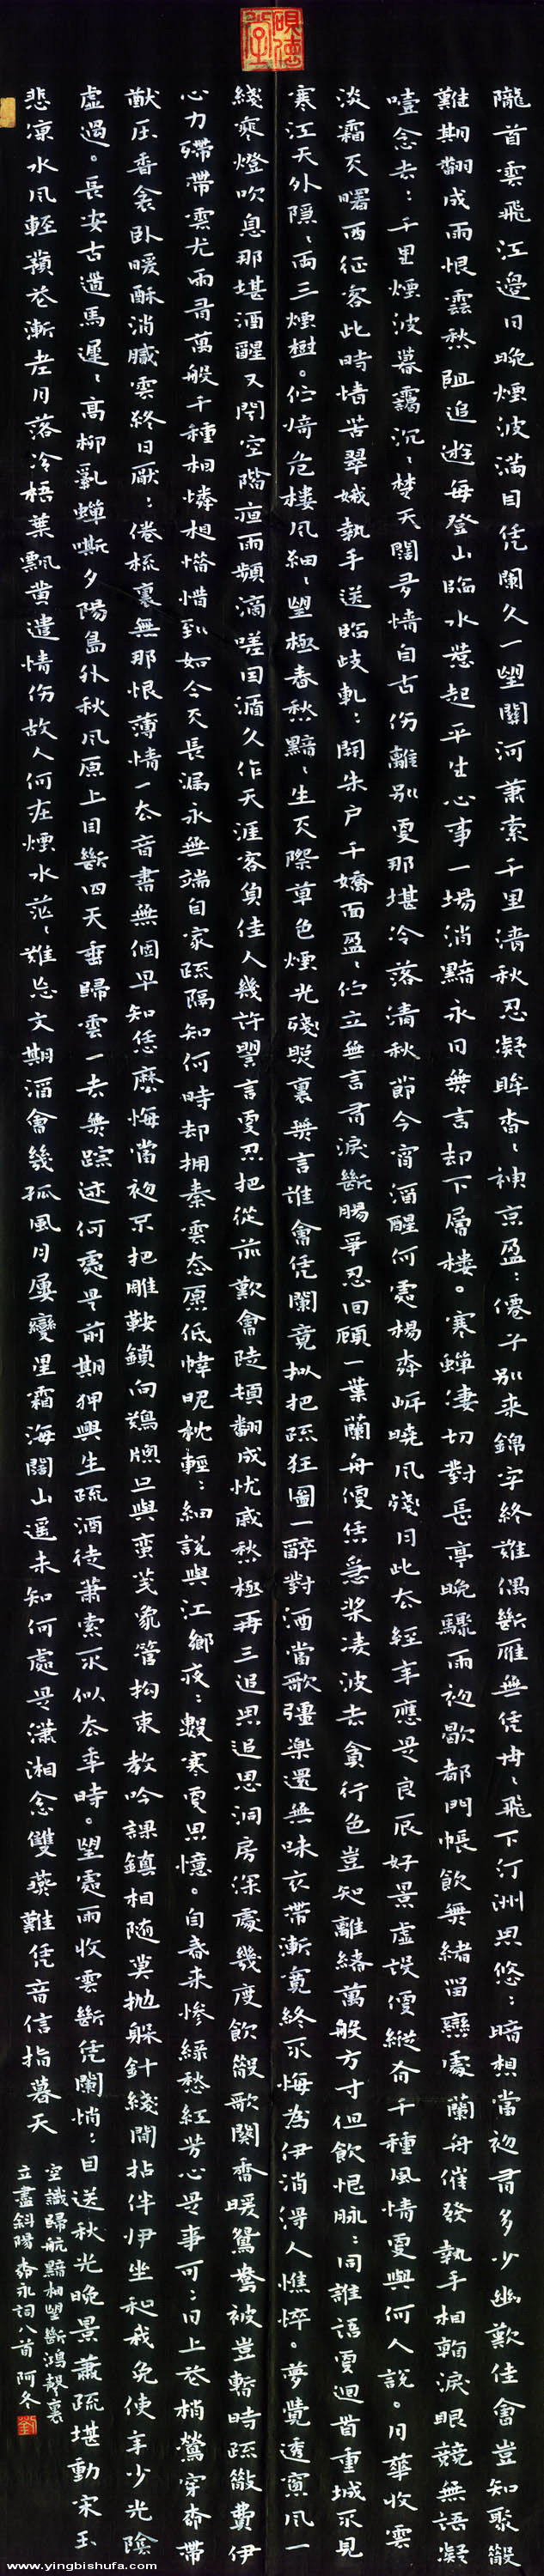 硯德堂
隴首雲飛江邊日晚煙波滿目凭闌久一望關河蕭索千里清秋忍凝眸杳、神京盈：僊子別來錦字終難偶斷雁無凭冉、飛下汀洲思悠：暗想當初有多少幽歡佳會豈知聚散
難期翻成雨恨雲愁阻追遊每登山臨水惹起平生心事一場消黯永日無言却下層樓。寒蟬凄切對長亭晚驟雨初歇都門帳飲無緒留戀處蘭舟催發執手相看淚眼競無語凝
噎念去：千里煙波暮靄沉、楚天闊多情自古傷離別更那堪冷落清秋節今宵酒醒何處楊柳岸曉風殘月此去經年應是良辰好景虛設便縱有千種風情更與何人說。月華收雲
淡霜天曙西征客此時情苦翠娥執手送臨歧軋：開朱戶千嬌面盈、伫立無言有淚斷腸爭忍回顧一葉蘭舟便恁急槳凌波去貪行色豈知離緒萬般方寸但飲恨脉：同誰語更迴首重城不見
寒江天外隱、兩三煙樹。伫倚危樓風細、望極春愁黯、生天際草色煙光殘照裏無言誰會凭闌意擬把疏狂圖一醉對酒當歌彊樂還無味衣帶漸寬終不悔為伊消得人憔悴。夢覺透窗風一
綫寒燈吹息那堪酒醒又聞空階夜雨頻滴嗟因循久作天涯客負佳人幾許盟言更忍把從前歡會陡頓翻成忧戚愁極再三追思追思洞房深處幾度飲散歌闋香暖鴛鴦被豈暫時疏散費伊
心力殢帶雲尤雨有萬般千種相憐相惜惜到如今天長漏永無端自家疏隔知何時却拥秦雲态願低幃昵枕輕：細說與江鄉夜：數寒更思憶。自春來慘綠愁紅芳心是事可：日上花梢鶯穿柳帶
猷压香衾臥暖酥消膩雲終日厭：倦梳裹無那恨薄情一去音書無個早知恁麼悔當初不把雕鞍鎖向鷄牕只與蛮箋象管拘束教吟課鎮相隨莫抛躲針綫閒拈伴伊坐和我免使年少光陰
虛過。長安古道馬遲、高柳亂蟬嘶夕陽島外秋風原上目斷四天垂歸雲一去無踪迹何處是前期狎興生疏酒徒蕭索不似去年時。望處雨收雲斷凭闌悄：目送秋光晚景蕭疏堪動宋玉
悲凉水風輕蘋花漸老月落冷梧葉飄黄遣情傷故人何在煙水茫、難忘文期酒會幾孤風月屢變星霜海闊山遥未知何處是瀟湘念雙燕難凭音信指暮天
空識歸航黯相望斷鴻聲裏
立盡斜陽 柳永詞八首 阿冬
www.yingbishufa.com